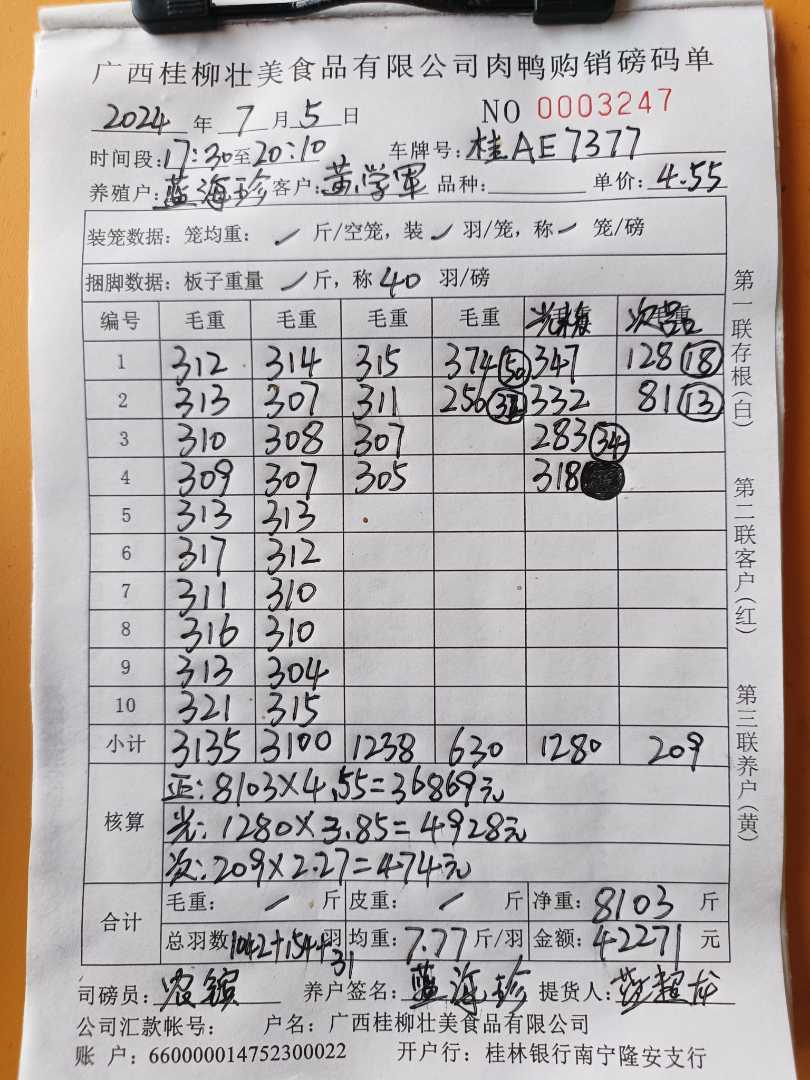 广西桂柳壮美食品有限公司肉鸭购销磅码单
2024 年 7 月 5 日 NO 0003247
时间段:17:30至20:10 车牌号:桂AE7377
养殖户:蓝海珍 客户:黄学军 品种: 单价:4.55
装笼数据:笼均重: / 斤/空笼,装 / 羽/笼,称 / 笼/磅
捆脚数据:板子重量 / 斤,称 40 羽/磅
编号 毛重 毛重 毛重 毛重 次品
1 312 314 315 374 50 347 128 18
2 313 307 311 256 32 332 81 13
3 310 308 307 283 34
4 309 307 305 318
5 313 313
6 317 312
7 311 310
8 316 310
9 313 304
10 321 315
小计 3135 3100 1238 630 1280 209
核算 正:8103×4.55=36869元
光:1280×3.85=4928元
次:209×2.27=474元
合计 毛重: / 斤 皮重: / 斤 净重:8103 斤
总羽数 1042+154+31 羽 均重:7.77 斤/羽 金额:42271 元
司磅员:农镔 养户签名:蓝海珍 提货人:
公司汇款帐号: 户名:广西桂柳壮美食品有限公司
账 户:660000014752300022 开户行:桂林银行南宁隆安支行
第一联存根(白)
第二联客户(红)
第三联养户(黄)